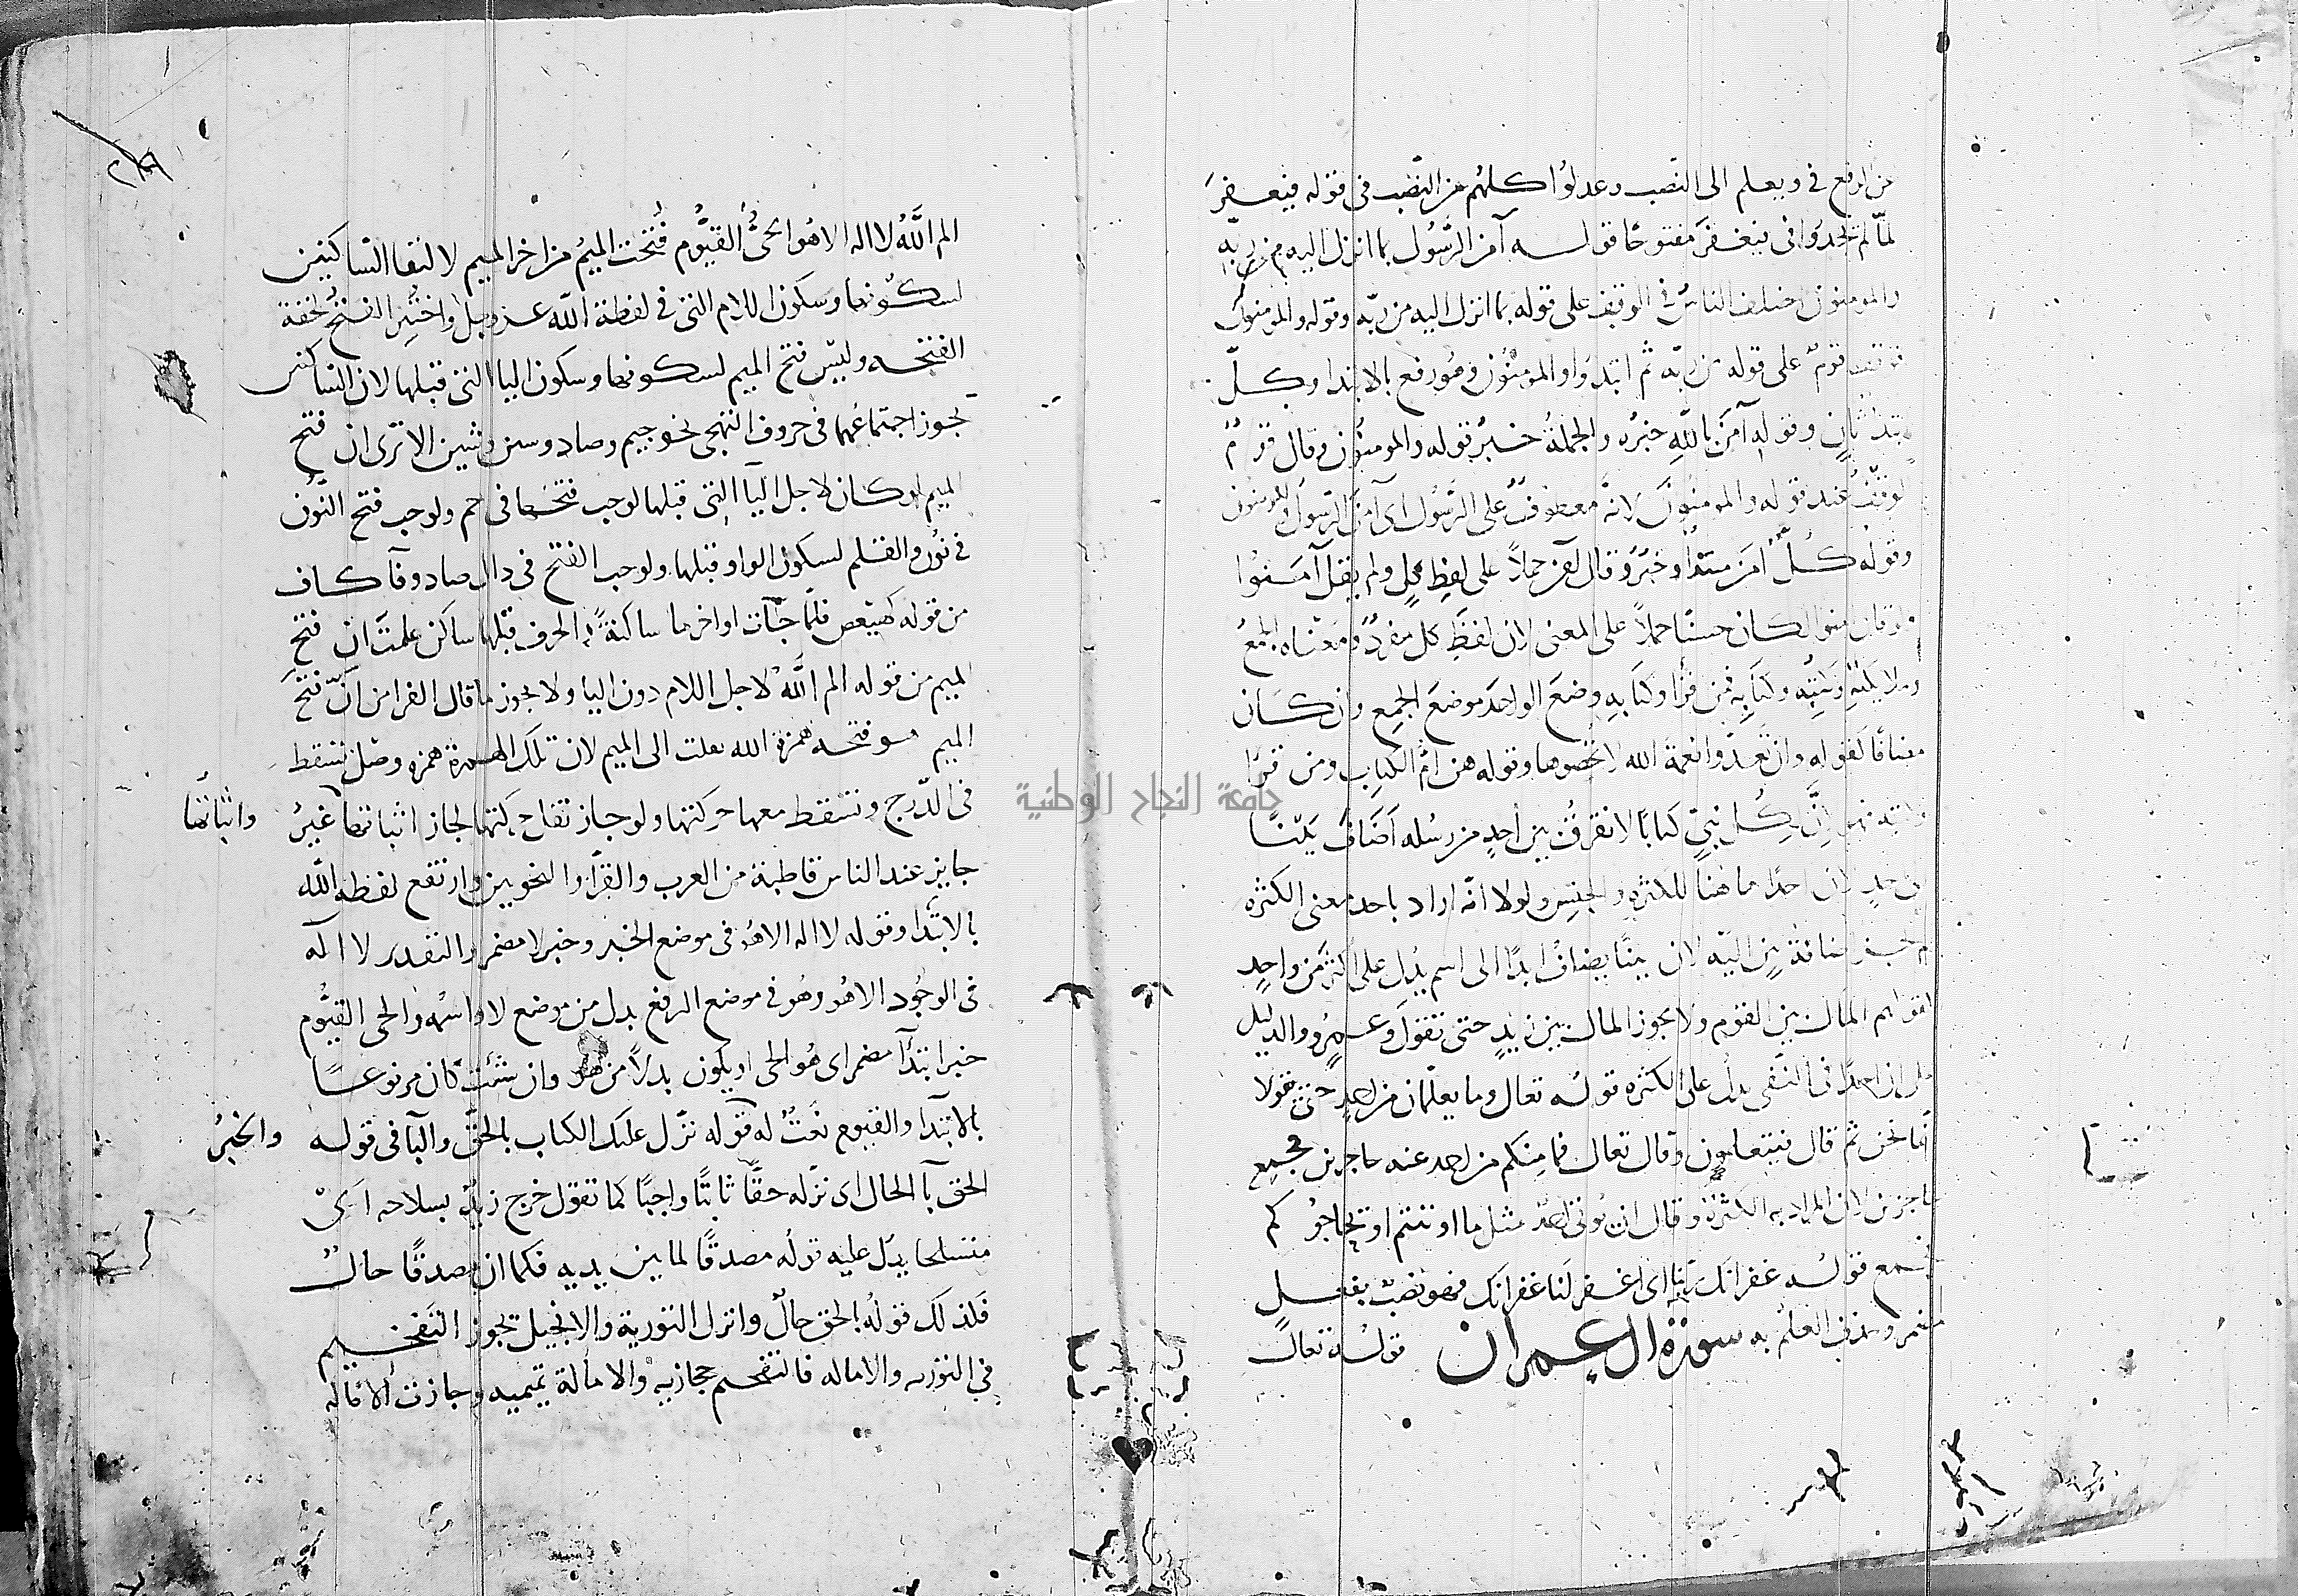 عن الرفع في ويعلم الى النصب وعدلوا كلهم عن النصب في قوله فيغفر
لما لم تجدوا في فيغفر مفتوحا قوله آمن الرسول بما انزل اليه من ربه
والمومنون اختلف الناس في الوقف على قوله بما انزل اليه من ربه وقوله والمومنون
فوقف قوم على قوله من ربه ثم ابتدوا والمومنون فهو رفع بالابتدا وكل
مبتدا ثان وقوله آمن بالله خبره والجملة خبر قوله والمومنون وقال قوم
الوقف عند قوله والمومنون لانه معطوف على الرسول اى آمن الرسول والمومنون
وقوله كل آمن مبتدأ وخبر وقال آمن حملاً على لفظ كل ولم يقل آمنوا
ولو قال امنوا لكان حسنا حملاً على المعنى لان لفظ كل مفرد ومعناه الجمع
وملايكته وكتبه وكتابه فمن قرأ وكتابه وضع الواحد موضع الجمع وان كان
مضافا لقوله وان تعدوا نعمة الله لا تحصوها وقوله هن ام الكتاب ومن قرا
وكتبه فهو لان لكل نبي كتابا لا نفرق بين أحد من رسله اضاف بينا
الى احد لان احدا هاهنا للكثرة والجنس ولولا انه اراد باحد معنى الكثره
لم تجز اضافة بين اليه لان بينا يضاف ابدا الى اسم يدل على اكثر من واحد
كقولهم المال بين القوم ولا يجوز المال بين زيد حتى تقول وعمرو والدليل
على ان احدا في النفي يدل على الكثره قوله تعالى وما يعلمان من احد حتى يقولا
انما نحن ثم قال فيتعلمون وقال تعالى فما منكم من احد عنه حاجزين فجمع
حاجزين لان المراد به الكثرة وقال ان يوتى احد مثل ما اوتيتم او يحاجوكم
فجمع قوله غفرانك ربنا اى اغفر لنا غفرانك فهو نصب بفعل
مضمر وحذف العلم به سورة ال عمران قوله تعالى
الم الله لا اله الا هو الحي القيوم فتحت الميم من اخر الميم لالتقا الساكنين
لسكونها وسكون اللام التي في لفظة الله عز وجل واختير الفتح لخفة
الفتحه وليس فتح الميم لسكونها وسكون اليا التي قبلها لان الساكنين
يجوز اجتماعهما في حروف التهجي نحو جيم وصاد وسين وشين الا ترى ان فتح
الميم لو كان لاجل اليا التي قبلها لوجب فتحها في حم ولوجب فتح النون
في نون والقلم لسكون الواو قبلها ولوجب الفتح في دال صاد وفآ كاف
من قوله كهيعص فلما جآت اواخرها ساكنة والحرف قبلها ساكن علمت ان فتح
الميم من قوله الم الله لاجل اللام دون اليا ولا يجوز ما قال الفرا من ان فتح
الميم هو فتحه همزة الله نقلت الى الميم لان تلك الهمزة همزه وصل تسقط
في الدرج وتسقط معها حركتها ولو جاز بقا حركتها لجاز اثباتها غير واثباتها
جايز عند الناس قاطبة من العرب والقرآ والنحويين وارتفع لفظه الله
بالابتدا وقوله لا اله الا هو في موضع الخبر وخبر لا مضمر والتقدير لا اله
في الوجود الا هو وهو في موضع الرفع بدل من موضع لا واسمها والحي القيوم
خبر ابتدآ مضمر اى هو الحي او يكون بدلاً من هو وان شئت كان مرفوعا
بالابتدآ والقيوم نعت له قوله نزل عليك الكتاب بالحق والبا في قوله والخبر
الحق بآ الحال اى نزله حقا ثابتا واجبا كما تقول خرج زيد بسلاحه اى
متسلحا يدل عليه قوله مصدقا لما بين يديه فكما ان مصدقا حال
فلذلك قوله بالحق حال وانزل التورية والانجيل يجوز التفخيم
في التوريه والاماله فالتفخيم حجازيه والامالة تميميه وجازت الاماله
جامعة النجاح الوطنية